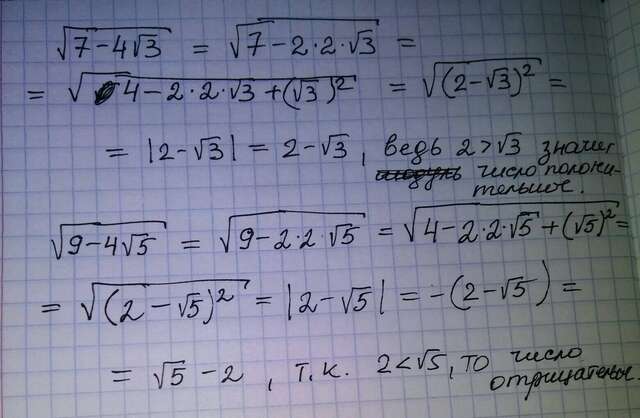 √(7-4√3) = √(7-2·2·√3) =
= √(4-2·2·√3+(√3)²) = √((2-√3)²) =
= |2-√3| = 2-√3, ведь 2>√3 значит
число положи-
тельное.
√(9-4√5) = √(9-2·2·√5) = √(4-2·2·√5+(√5)²) =
= √((2-√5)²) = |2-√5| = -(2-√5) =
= √5-2, т.к. 2<√5, то число
отрицательное.